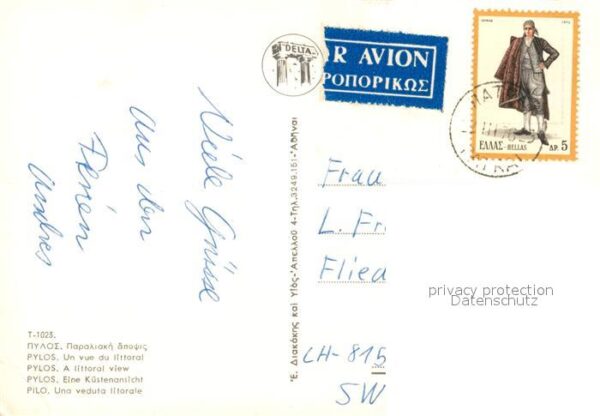 DELTA
R AVION
ΡΟΠΟΡΙΚΩΣ
ΕΛΛΑΣ-HELLAS ΔΡ. 5
Viele Grüsse
aus den
Ferien
Andres
Frau
L. Fr
Flied
CH-815
SW
privacy protection
Datenschutz
Έ. Διακάκης καί Υἱός-Ἀπελλοῦ 4-Τηλ.3249.151-Ἀθῆναι
T-1023.
ΠΥΛΟΣ, Παραλιακή ἄποψις
PYLOS, Un vue du littoral
PYLOS, A littoral view
PYLOS, Eine Küstenansicht
PILO, Una veduta litorale